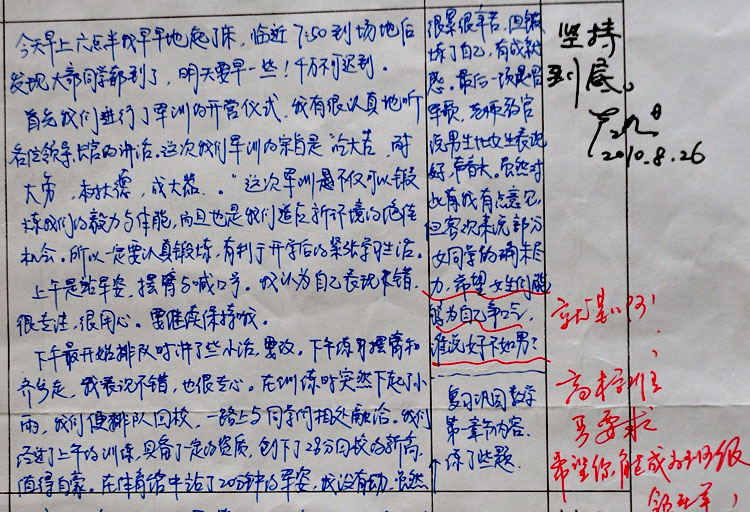 今天早上六点半我早早地起了床，临近7:50到场地后
发现大部同学都到了，明天要早一些！千万不迟到。
首先我们进行了军训的开营仪式，我有很认真地听
各位领导、长官的讲话。这次我们军训的宗旨是"吃大苦，耐
大劳，成大器。"这次军训是不仅可以锻
炼我们的毅力与体能，而且也是我们适应新环境的绝佳
机会。所以一定要认真锻炼，有利于开学后的紧张学习生活。
上午是站军姿，摆臂与喊口号。我认为自己表现不错，
很专注，很用心。要继续保持哦。
下午最开始排队时讲了些小话，要改。下午练习摆臂和
齐步走，我表现不错，也很专心。在训练时突然下起了小
雨，我们便排队回校，一路上与同学们相处融洽。我们
经过上午的训练，具备了一定的资质，创下了28分回校的新高，
值得自豪。在体育馆中站了20分钟的军姿，我没有动，虽然
很累很辛苦，但锻
炼了自己，有成就
感。最后一项是唱
军歌，教官
说男生比女生表现
好，声音大。虽然对
此有我有点意见，
但客观来说部分
女同学的确未尽
力，希望女生们能
够为自己争口气，
谁说女子不如男？
复习巩固数学
第一章节内容。
练了些题。
坚持
到底。
2010.8.26
高标准
严要求
希望你能成为班级